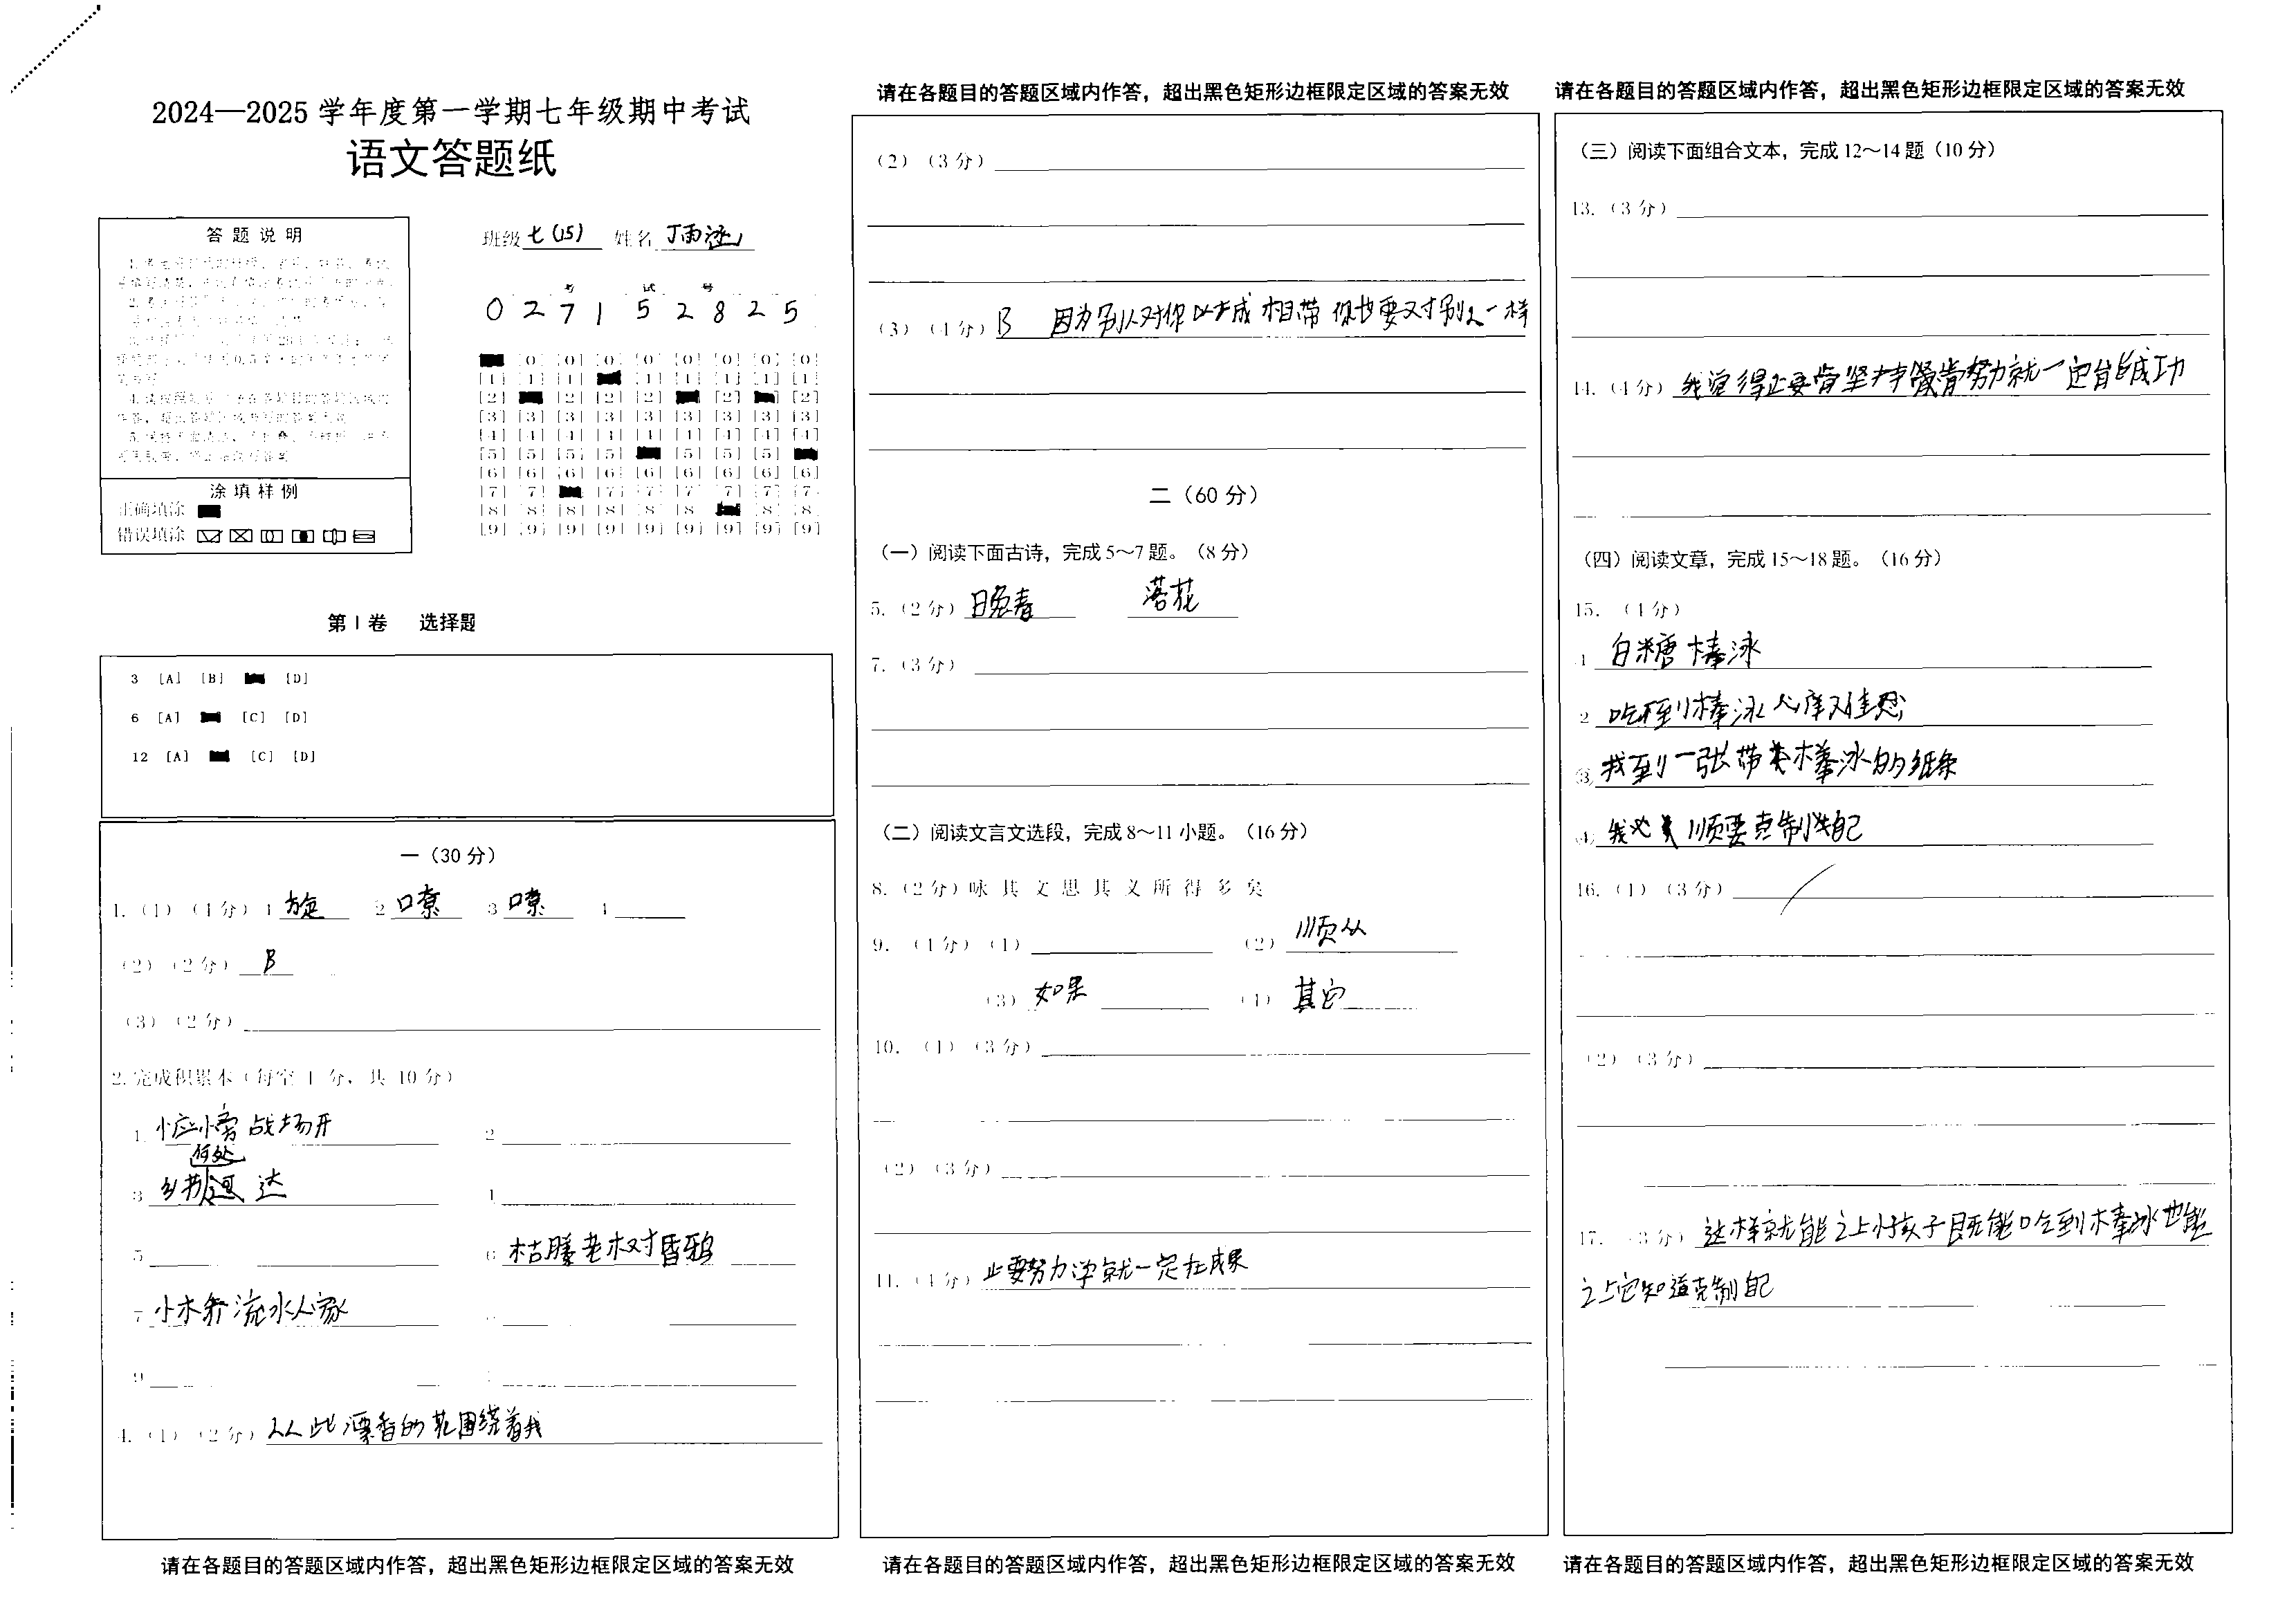 2024—2025 学年度第一学期七年级期中考试
语文答题纸
答 题 说 明
涂 填 样 例
正确填涂
错误填涂
班级 七(15) 姓名 丁雨
考 试 号
0 2 7 1 5 2 8 2 5
[0] [0] [0] [0] [0] [0] [0]
[1] [1] [1] [1] [1] [1] [1] [1]
[2] [2] [2] [2] [2] [2]
[3] [3] [3] [3] [3] [3] [3] [3] [3]
[4] [4] [4] [4] [4] [4] [4] [4] [4]
[5] [5] [5] [5] [5] [5] [5]
[6] [6] [6] [6] [6] [6] [6] [6] [6]
[7] [7] [7] [7] [7] [7] [7] [7]
[8] [8] [8] [8] [8] [8] [8] [8]
[9] [9] [9] [9] [9] [9] [9] [9] [9]
第 I 卷 选择题
3 [A] [B] [D]
6 [A] [C] [D]
12 [A] [C] [D]
一（30 分）
1.（1）（4分）1 旋 2 嘹 3 嘹 4
（2）（2分） B
（3）（2分）
2. 完成积累本（每空 1 分，共 10 分）
1. 应傍战场开 2
何处
3 乡书 达 4
5 6 枯藤老树昏鸦
7 小木桥流水人家
9
4.（1）（2分） 从此漂香的花围绕着我
请在各题目的答题区域内作答，超出黑色矩形边框限定区域的答案无效
请在各题目的答题区域内作答，超出黑色矩形边框限定区域的答案无效
（2）（3分）
（3）（4分） B 因为别人对你以成相带 你也要对别人一样
二（60 分）
（一）阅读下面古诗，完成 5～7 题。（8 分）
5.（2分） 日兔春 落花
7.（3分）
（二）阅读文言文选段，完成 8～11 小题。（16 分）
8.（2分）咏 其 文 思 其 义 所 得 多 矣
9.（4分）（1） （2） 顺从
（3） 如果 （4） 其它
10.（1）（3分）
（2）（3分）
11.（4分） 止要努力学就一定在成果
请在各题目的答题区域内作答，超出黑色矩形边框限定区域的答案无效
请在各题目的答题区域内作答，超出黑色矩形边框限定区域的答案无效
（三）阅读下面组合文本，完成 12～14 题（10 分）
13.（3分）
14.（4分） 我觉得止要肯坚持肯努力就一定能成功
（四）阅读文章，完成 15～18 题。（16 分）
15.（4分）
1 白糖棒冰
2 吃不到棒冰心痒难忍
③ 找到一张带卖棒冰的纸条
④ 我必须要克制住自己
16.（1）（3分）
（2）（3分）
17.（3分） 这样就能让小孩子既能吃到棒冰也能
让它知道克制自己
请在各题目的答题区域内作答，超出黑色矩形边框限定区域的答案无效